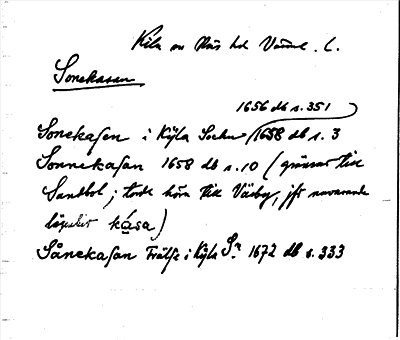 Kila sn Näs hd Värml. l.
Sonekasan
1656 db s. 351
Sonekasen i Kÿla Sochn 1658 db s. 3
Sonnekasan 1658 db s. 10 (gränsar till
Sandbol; torde höra till Väsby, jfr nuvarande
kåsa)
Sånekasan Frälse i Kÿla Sn 1672 db s. 333